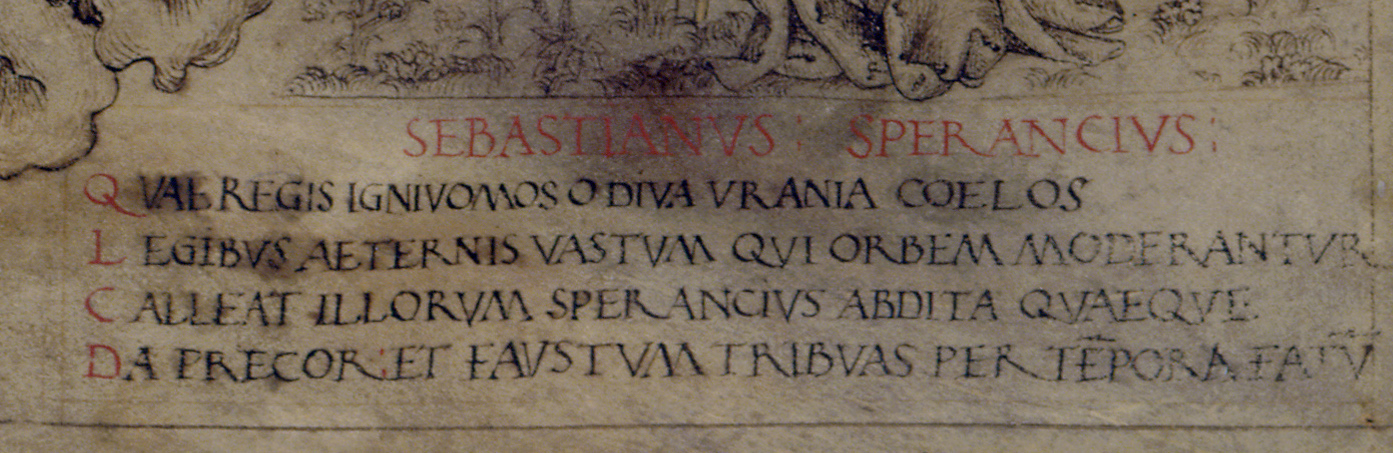 SEBASTIANVS : SPERANCIVS :
QVAE REGIS IGNIVOMOS O DIVA VRANIA COELOS
LEGIBVS AETERNIS VASTVM QVI ORBEM MODERANTVR
CALLEAT ILLORVM SPERANCIVS ABDITA QVAEQVE.
DA PRECOR: ET FAVSTVM TRIBVAS PER TĒPORA FATV̄